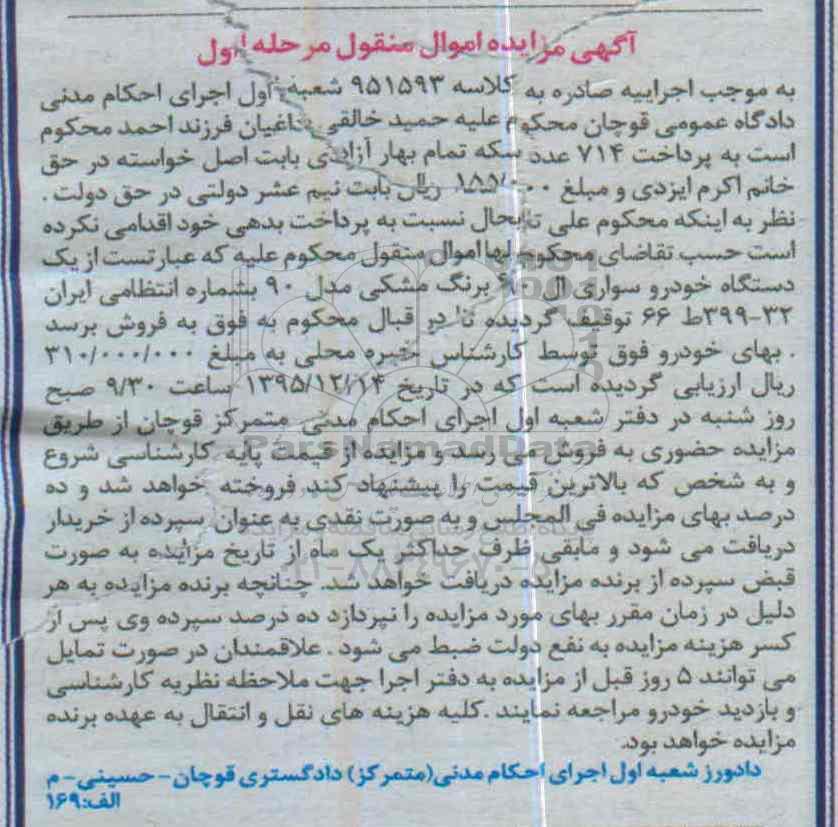 آگهی مزایده اموال منقول مرحله اول
به موجب اجراییه صادره به کلاسه ۹۵۱۵۹۳ شعبه اول اجرای احکام مدنی
دادگاه عمومی قوچان محکوم علیه حمید خالقی فرزند احمد محکوم
است به پرداخت ۷۱۴ عدد سکه تمام بهار آزادی بابت اصل خواسته در حق
خانم اکرم ایزدی و مبلغ ریال بابت نیم عشر دولتی در حق دولت .
نظر به اینکه محکوم علی تابحال نسبت به پرداخت بدهی خود اقدامی نکرده
است حسب تقاضای محکوم لها اموال منقول محکوم علیه که عبارتست از یک
دستگاه خودرو سواری ال ۹۰ برنگ مشکی مدل ۹۰ بشماره انتظامی ایران
۳۲-۳۹۹ط ۶۶ توقیف گردیده تا در قبال محکوم به فوق به فروش برسد
. بهای خودرو فوق توسط کارشناس خبره محلی به مبلغ ۳۱۰/۰۰۰/۰۰۰
ریال ارزیابی گردیده است که در تاریخ ۱۳۹۵/۱۲/۱۴ ساعت ۹/۳۰ صبح
روز شنبه در دفتر شعبه اول اجرای احکام مدنی متمرکز قوچان از طریق
مزایده حضوری به فروش می رسد و مزایده از قیمت پایه کارشناسی شروع
و به شخص که بالاترین قیمت را پیشنهاد کند فروخته خواهد شد و ده
درصد بهای مزایده فی المجلس و به صورت نقدی به عنوان سپرده از خریدار
دریافت می شود و مابقی ظرف حداکثر یک ماه از تاریخ مزایده به صورت
قبض سپرده از برنده مزایده دریافت خواهد شد. چنانچه برنده مزایده به هر
دلیل در زمان مقرر بهای مورد مزایده را نپردازد ده درصد سپرده وی پس از
کسر هزینه مزایده به نفع دولت ضبط می شود . علاقمندان در صورت تمایل
می توانند ۵ روز قبل از مزایده به دفتر اجرا جهت ملاحظه نظریه کارشناسی
و بازدید خودرو مراجعه نمایند .کلیه هزینه های نقل و انتقال به عهده برنده
مزایده خواهد بود.
دادورز شعبه اول اجرای احکام مدنی(متمرکز) دادگستری قوچان-حسینی-م
الف:۱۶۹
ParsNamadData